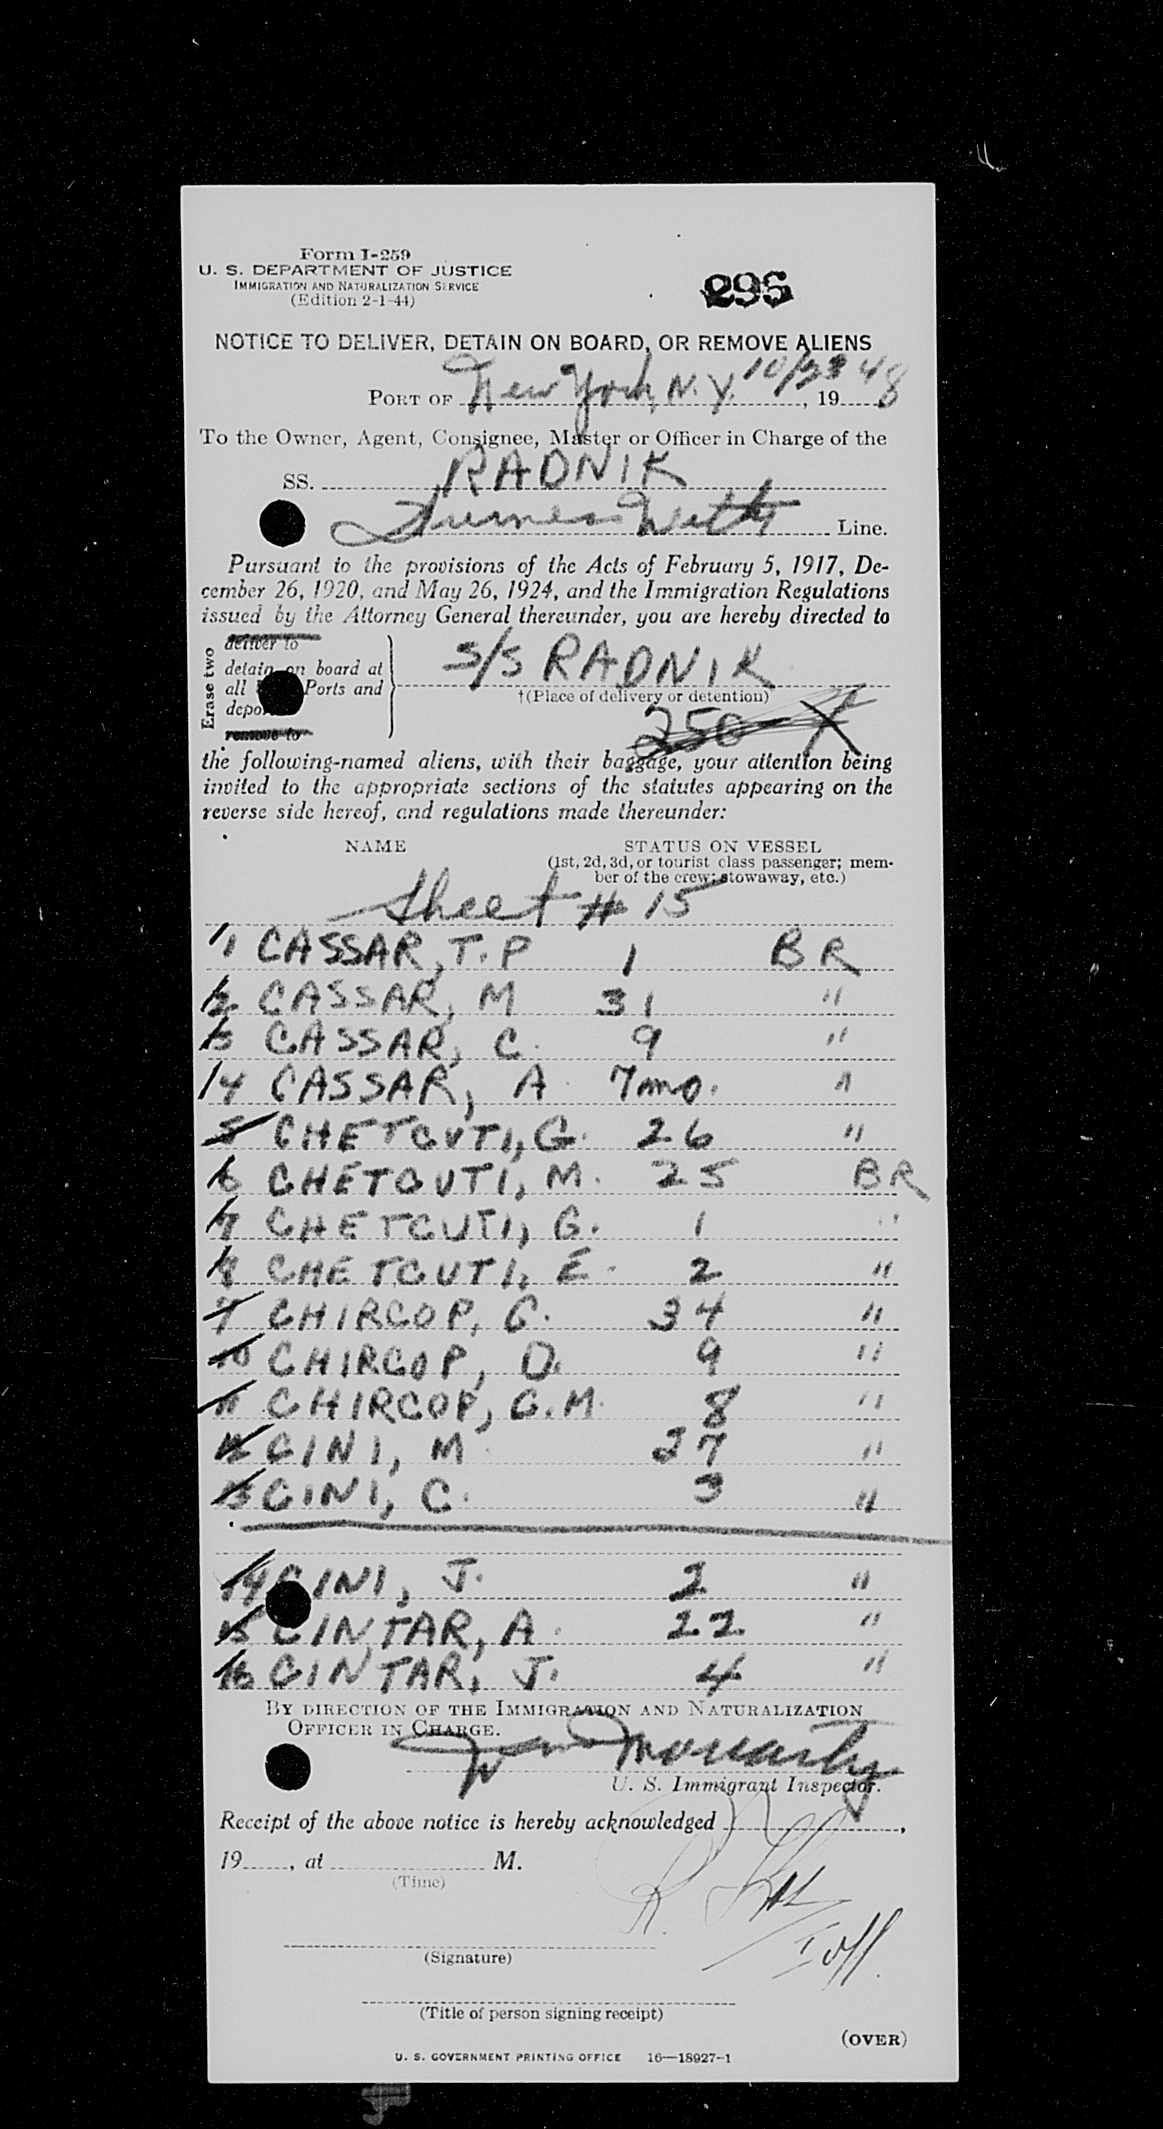 Form I-259
U. S. DEPARTMENT OF JUSTICE
IMMIGRATION AND NATURALIZATION SERVICE
(Edition 2-1-44)
295
NOTICE TO DELIVER, DETAIN ON BOARD, OR REMOVE ALIENS
PORT OF New York, N. Y. 10/23 , 1948
To the Owner, Agent, Consignee, Master or Officer in Charge of the
SS. RADNIK
Furness Withy Line.
Pursuant to the provisions of the Acts of February 5, 1917, De-
cember 26, 1920, and May 26, 1924, and the Immigration Regulations
issued by the Attorney General thereunder, you are hereby directed to
Erase two
deliver to
detain on board at
all Ports and
remove to
S/S RADNIK
†(Place of delivery or detention)
250
the following-named aliens, with their baggage, your attention being
invited to the appropriate sections of the statutes appearing on the
reverse side hereof, and regulations made thereunder:
NAME STATUS ON VESSEL
(1st, 2d, 3d, or tourist class passenger; mem-
ber of the crew; stowaway, etc.)
Sheet # 15
1 CASSAR, T. P 1 BR
2 CASSAR, M 31 "
3 CASSAR, C. 9 "
4 CASSAR, A. 7 mo. "
5 CHETCUTI, G. 26 "
6 CHETCUTI, M. 25 BR
7 CHETCUTI, G. 1 "
8 CHETCUTI, E. 2 "
9 CHIRCOP, C. 34 "
10 CHIRCOP, D. 9 "
11 CHIRCOP, G. M. 8 "
12 CINI, M. 27 "
13 CINI, C. 3 "
14 CINI, J. 2 "
15 CINTAR, A. 22 "
16 CINTAR, J. 4 "
BY DIRECTION OF THE IMMIGRATION AND NATURALIZATION
OFFICER IN CHARGE.
Moriarty
U. S. Immigrant Inspector.
Receipt of the above notice is hereby acknowledged ,
19 , at M.
(Time)
(Signature)
(Title of person signing receipt)
(OVER)
U. S. GOVERNMENT PRINTING OFFICE 16—18927-1